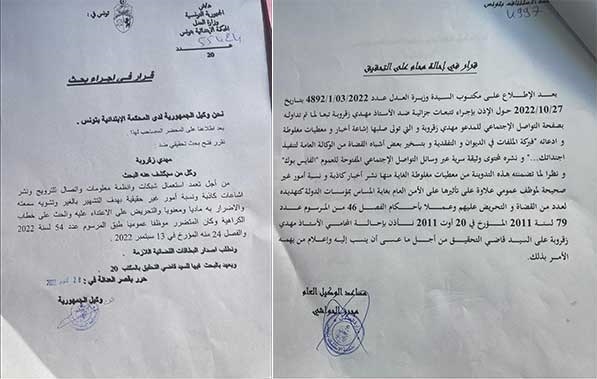 تونس في :
الجمهورية التونسية
وزارة العدل
المحكمة الإبتدائية بتونس
55424
20
قرار في إجراء بحث
نحن وكيل الجمهورية لدى المحكمة الإبتدائية بتونس .
بعد اطلاعنا على المحضر المصاحب لهذا .
نقرر فتح بحث تحقيقي ضد
مهدي زقروبة
وكل من سيكشف عنه البحث
من أجل تعمد استعمال شبكات وانظمة معلومات واتصال للترويج ونشر
اشاعات كاذبة ونسبة أمور غير حقيقية بهدف التشهير بالغير وتشويه سمعته
والاضرار به ماديا ومعنويا والتحريض على الاعتداء عليه والحث على خطاب
الكراهية وكان المتضرر موظفا عموميا طبق المرسوم عدد 54 لسنة 2022
والفصل 24 منه المؤرخ في 13 سبتمبر 2022 .
ونطلب اصدار البطاقات القضائية اللازمة .
ويعهد بالبحث فيها للسيد قاضي التحقيق بالمكتب 20
حرر بقصر العدالة في : 28 2022
وكيل الجمهورية
4997
قرار في إحالة محام على التحقيق
بعد الإطلاع على مكتوب السيدة وزيرة العدل عدد 4892/1/03/2022 بتاريخ
2022/10/27 حول الإذن بإجراء تتبعات جزائية ضد الأستاذ مهدي زقروبة تبعا لما تم تداوله
بصفحة التواصل الإجتماعي للمدعو مهدي زقروبة و التي تولى صلبها إشاعة أخبار و معطيات مغلوطة
و ادعائه "فبركة الملفات في الديوان و التفقدية و بتسخير بعض أشباه القضاة من الوكالة العامة لتنفيذ
اجنداتك..." و نشره لمحتوى وثيقة سرية عبر وسائل التواصل الإجتماعي المفتوحة للعموم "الفايس بوك"
و نظرا لما تضمنته هذه التدوينة من معطيات مغلوطة الغاية منها نشر أخبار كاذبة و نسبة أمور غير
صحيحة لموظف عمومي علاوة على تأثيرها على الأمن العام بغاية المساس بمؤسسات الدولة كتهديده
لعدد من القضاة و التحريض عليهم وعملا بأحكام الفصل 46 من المرسوم عدد
79 لسنة 2011 المؤرخ في 20 أوت 2011 نأذن بإحالة المحامي الأستاذ مهدي
زقروبة على السيد قاضي التحقيق من أجل ما عسى أن ينسب إليه وإعلام من يهمه
الأمر بذلك.
مساعد الوكيل العام